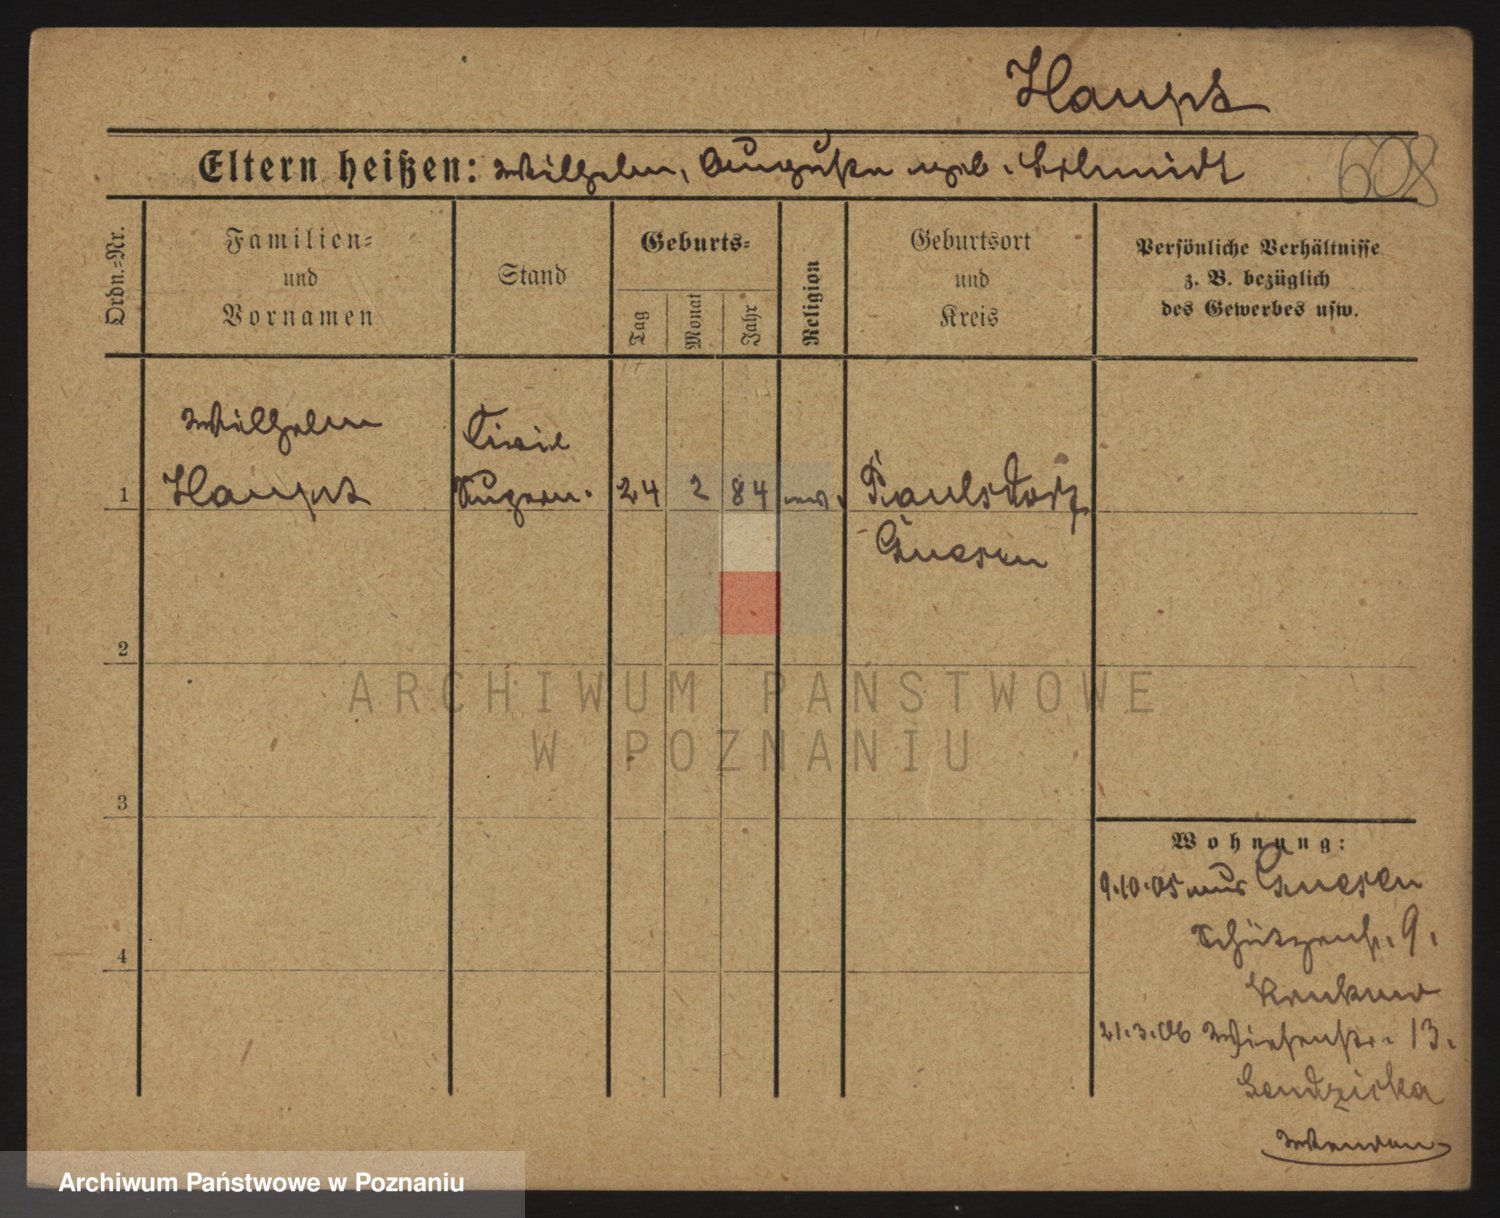 Haupt
608
Eltern heißen: Wilhelm, Auguste geb. Schmidt
Ordn.=Nr.
Familien=
und
Vornamen
Stand
Geburts=
Tag
Monat
Jahr
Religion
Geburtsort
und
Kreis
Persönliche Verhältnisse
z. B. bezüglich
des Gewerbes usw.
Wilhelm
Haupt
Civil
Supern.
1
24 2 84 ev.
Paulsdorf
Gnesen
2
3
4
ARCHIWUM PAŃSTWOWE
W POZNANIU
Wohnung:
9.10.05 aus Gnesen
Schützenstr. 9.
21.3.06 Wiesenstr. 13.
Gendzicka
Wenden
Archiwum Państwowe w Poznaniu